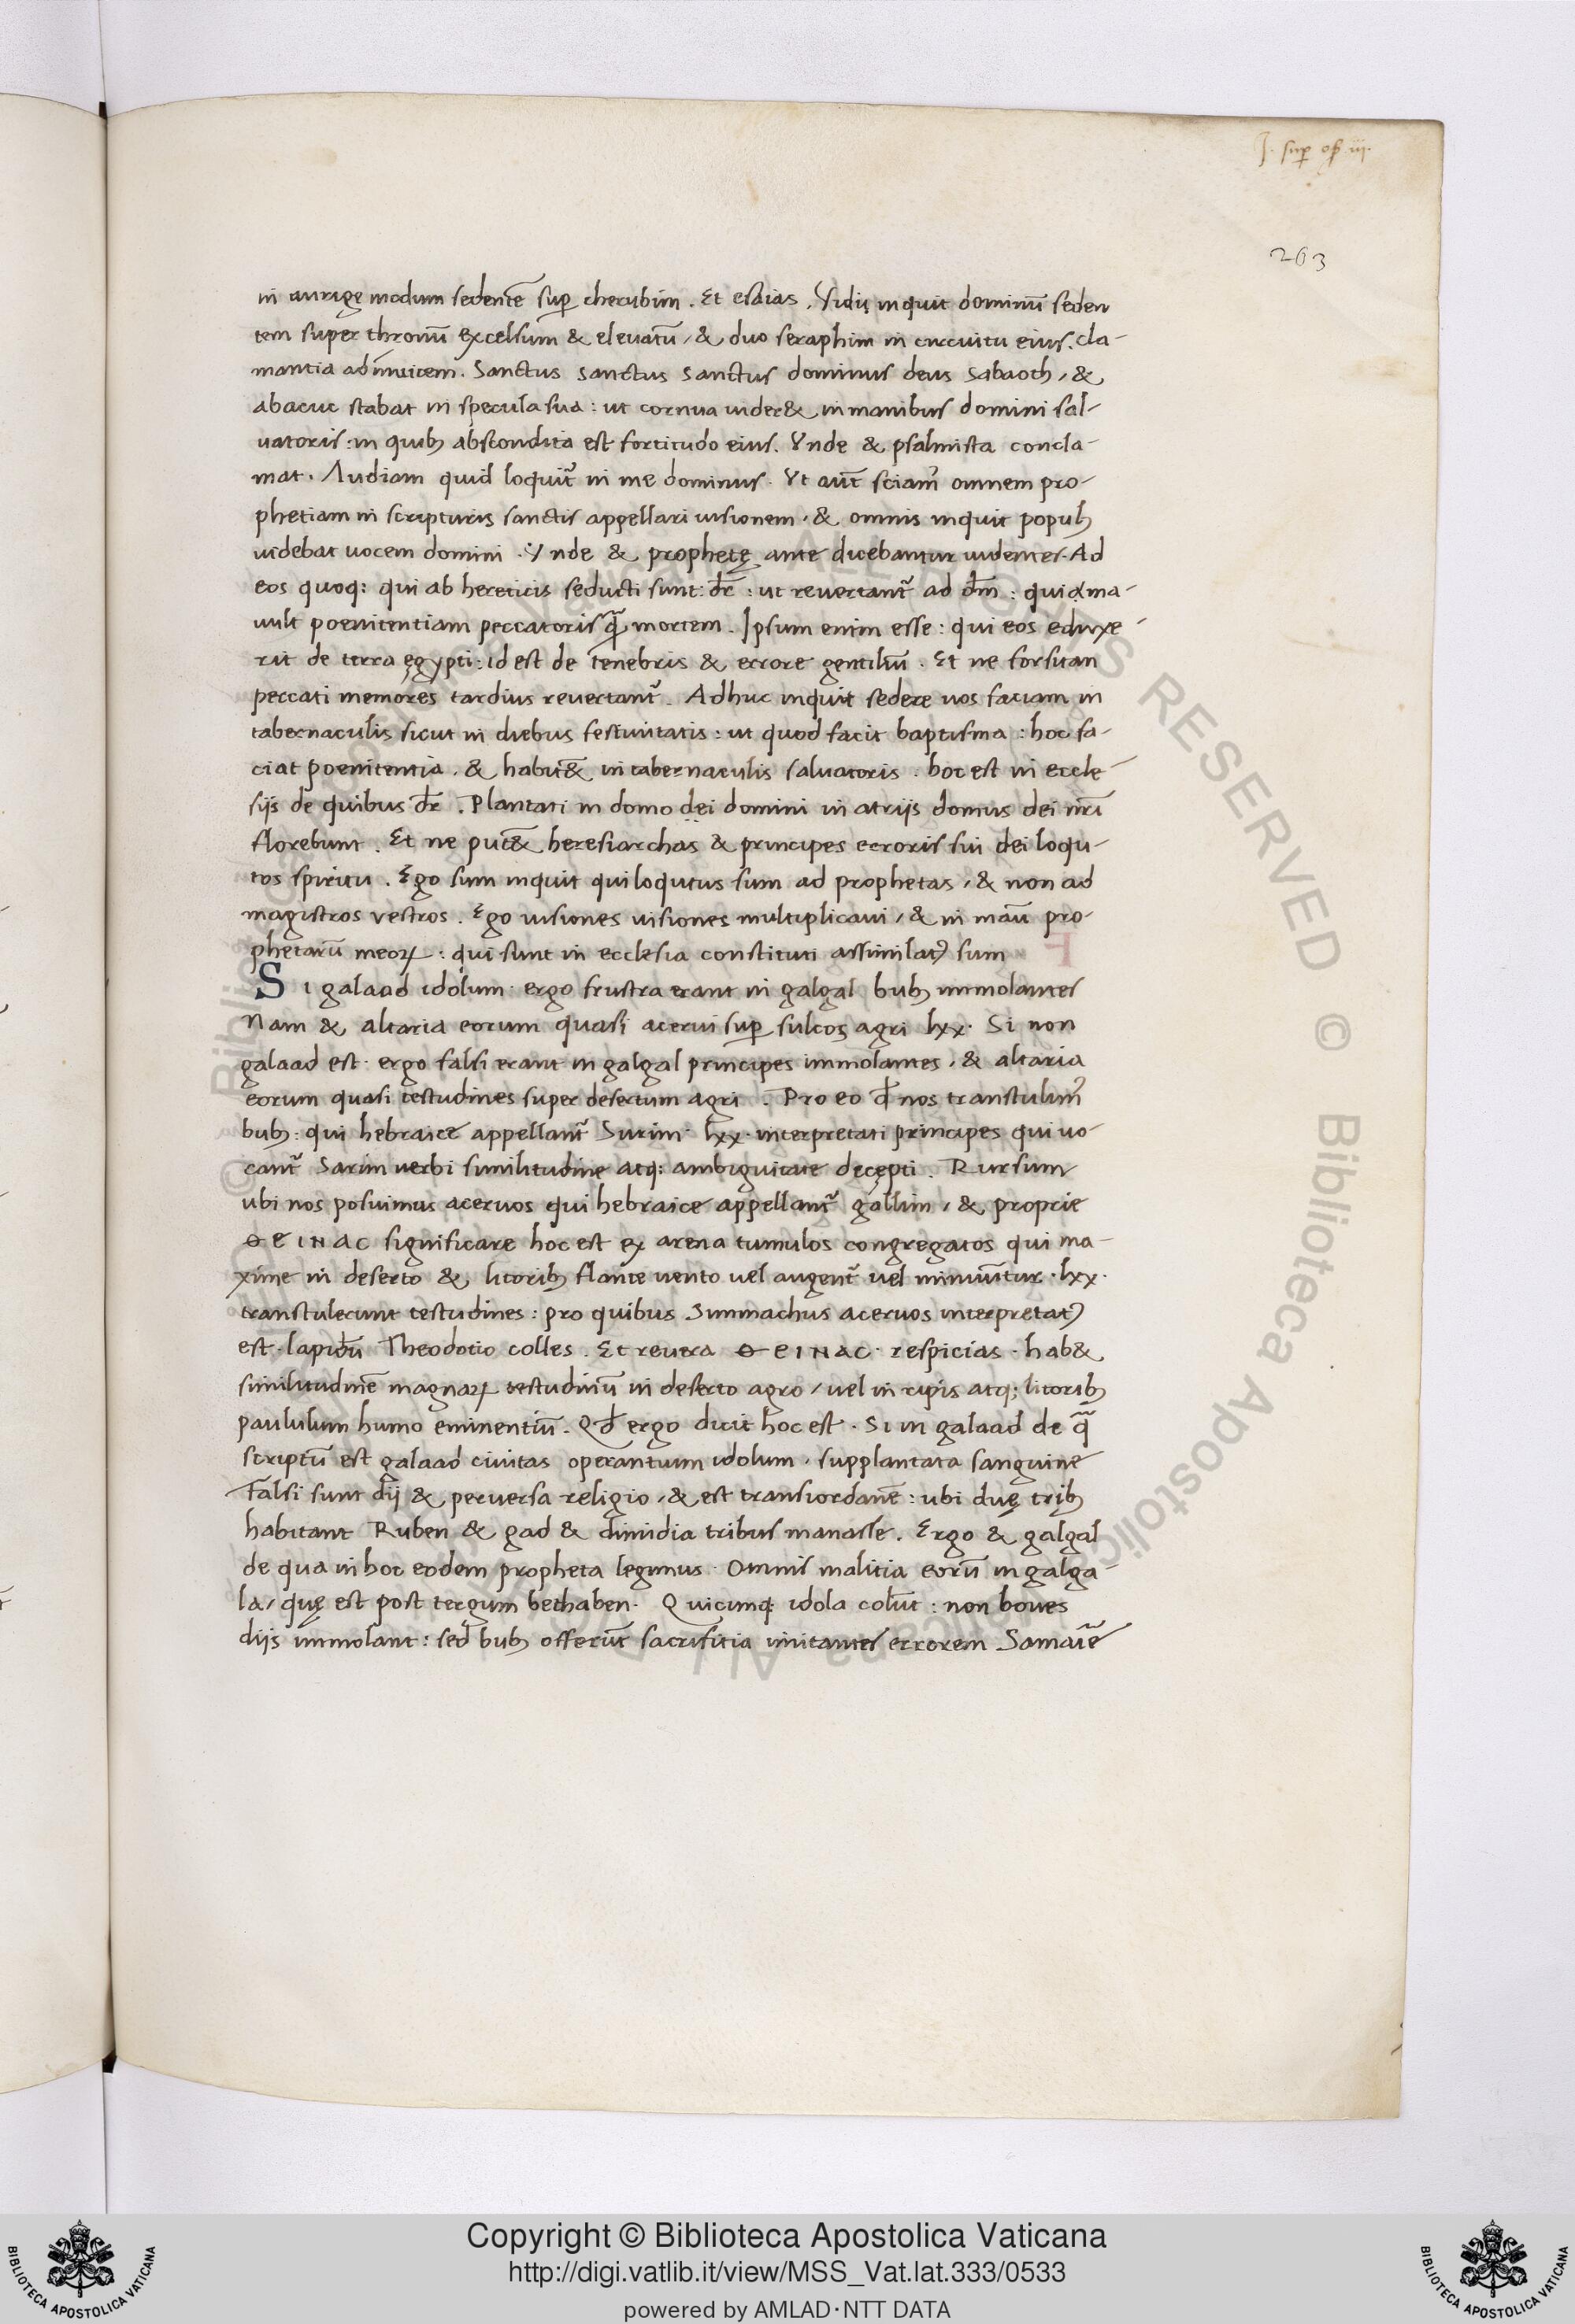 J. sup os iii.
263
in aurigę modum sedentē sup cherubim. Et esaias. Vidi inquit dominū seden
tem super thronū excelsum & eleuatū, & duo seraphim in circuitu eius. cla-
mantia ad inuicem. Sanctus sanctus sanctus dominus deus sabaoth, &
abacuc stabat in specula sua: ut cornua uider& in manibus domini sal-
uatoris: in quibꝫ abscondita est fortitudo eius. Vnde & psalmista concla-
mat. Audiam quid loquit᷑ in me dominus. Vt aūt sciamꝰ omnem pro-
phetiam in scripturis sanctis appellari uisionem. & omnis inquit populꝫ
uidebat uocem domini. Vnde & prophetę ante dicebantur uidentes. Ad
eos quoq: qui ab hereticis seducti sunt: dr̄: ut reuertant᷑ ad dm̄: qui ma-
uult poenitentiam peccatoris q̄ mortem. Ipsum enim esse: qui eos eduxe-
rit de terra ęgypti: id est de tenebris & errore gentiliū. Et ne forsitan
peccati memores tardius reuertant᷑. Adhuc inquit sedere uos faciam in
tabernaculis sicut in diebus festiuitatis: ut quod facit baptisma: hoc fa-
ciat poenitentia. & habit& in tabernaculis saluatoris. hoc est in eccle-
siis de quibus dr̄. Plantati in domo dei domini in atriis domus dei nr̄i
florebunt. Et ne put& heresiarchas & principes erroris sui dei loqu-
tos spiritu. Ego sum inquit qui loqutus sum ad prophetas, & non ad
magistros vestros. Ego uisiones uisiones multiplicaui, & in manū pro-
phetarū meoꝝ: qui sunt in ecclesia constituti assimilatꝰ sum
Si galaad idolum. ergo frustra erant in galgal bubꝫ immolantes
Nam & altaria eorum quasi acerui sup sulcos agri lxx. Si non
galaad est. ergo falsi erant in galgal principes immolantes, & altaria
eorum quasi testudines super desertum agri. Pro eo qd̄ nos transtulimꝰ
bubꝫ: qui hebraice appellant᷑ Surim. lxx. interpretati principes qui uo-
cant᷑ Sarim uerbi similitudine atq: ambiguitate decępti. Rursum
ubi nos posuimus aceruos qui hebraice appellant᷑ gallim, & proprie
ΘΕΙΝΑC significare hoc est ex arena tumulos congregatos qui ma-
xime in deserto & litoribꝫ flante uento uel augent᷑ uel minuūtur. lxx.
transtulerunt testudines: pro quibus Simmachus aceruos interpretatꝰ
est. lapidū Theodotio colles. Et reuera ΘΕΙΝΑC. respicias. hab&
similitudinē magnaꝝ testudinū in deserto agro, uel in ripis atq; litoribꝫ
paululum humo eminentiū. Qd̄ ergo dicit hoc est. Si in galaad de q̄
scriptū est galaad ciuitas operantium idolum, supplantata sanguine
Falsi sunt dij & peruersa religio, & est transiordanē: ubi duę tribꝫ
habitant Ruben & gad & dimidia tribus manasse. Ergo & galgal
de qua in hoc eodem propheta legimus. Omnis malitia eorū in galga-
la, quę est post tergum bethaben. Quicunq: idola colūt: non boues
diis immolant: sed bubꝫ offerūt sacrifitia imitantes errorem Samarię
Copyright © Biblioteca Apostolica Vaticana
http://digi.vatlib.it/view/MSS_Vat.lat.333/0533
powered by AMLAD·NTT DATA
BIBLIOTECA APOSTOLICA VATICANA
BIBLIOTECA APOSTOLICA VATICANA